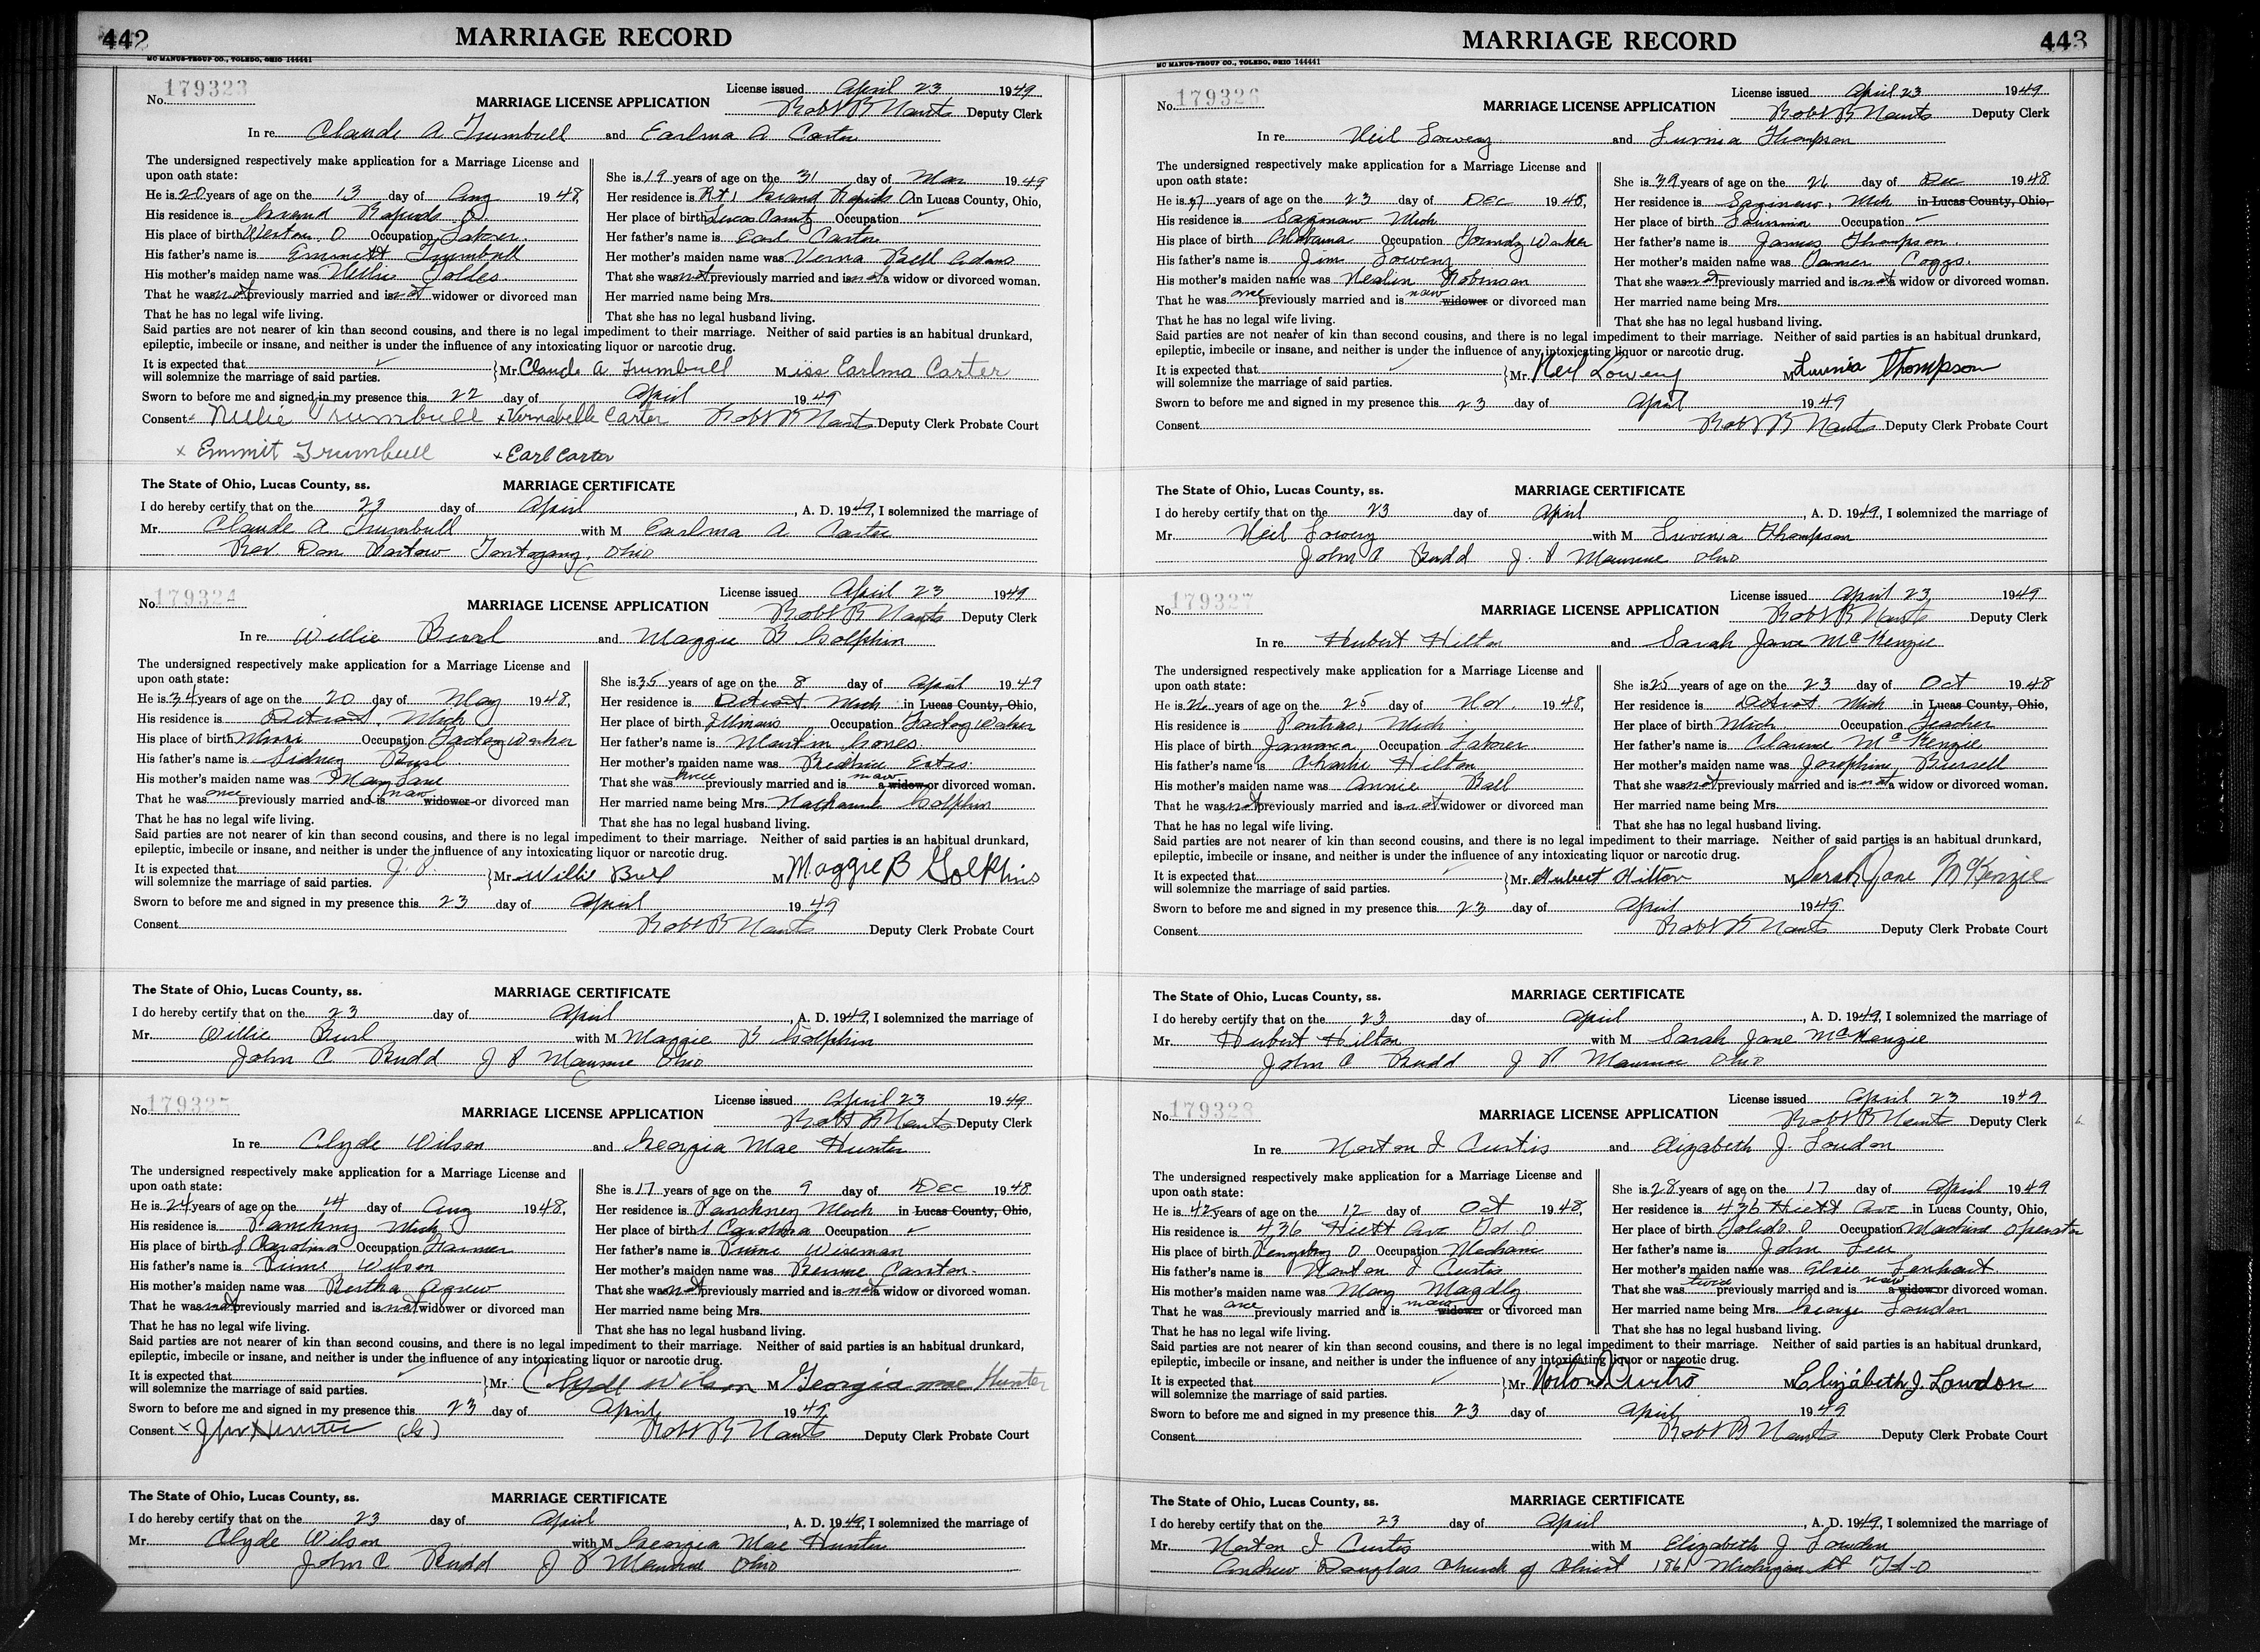 442
MARRIAGE RECORD
MC MANUS-TROUP CO., TOLEDO, OHIO 144441
No. 179323
License issued April 23 1949
MARRIAGE LICENSE APPLICATION Robt B Nants Deputy Clerk
In re Claude A Trumbull and Earlma A Carter
The undersigned respectively make application for a Marriage License and
upon oath state:
He is 20 years of age on the 13 day of Aug 1948,
His residence is Grand Rapids O.
His place of birth Weston, O Occupation Laborer
His father's name is Emmett Trumbull
His mother's maiden name was Nellie Tolles
That he was not previously married and is not widower or divorced man
That he has no legal wife living.
She is 19 years of age on the 31 day of Mar 1949
Her residence is Rt 1 Grand Rapids O in Lucas County, Ohio,
Her place of birth Lucas County Occupation ✓
Her father's name is Earl Carter
Her mother's maiden name was Verna Bell Adams
That she was not previously married and is not a widow or divorced woman.
Her married name being Mrs.
That she has no legal husband living.
Said parties are not nearer of kin than second cousins, and there is no legal impediment to their marriage. Neither of said parties is an habitual drunkard,
epileptic, imbecile or insane, and neither is under the influence of any intoxicating liquor or narcotic drug.
It is expected that ✓
will solemnize the marriage of said parties. } Mr. Claude A Trumbull Miss Earlma Carter
Sworn to before me and signed in my presence this 22 day of April 1949
Consent x Nellie Trumbull x Vernabelle Carter Robt B Nants Deputy Clerk Probate Court
x Emmit Trumbull x Earl Carter
The State of Ohio, Lucas County, ss. MARRIAGE CERTIFICATE
I do hereby certify that on the 23 day of April, A. D. 1949, I solemnized the marriage of
Mr. Claude A Trumbull with M Earlma A Carter
Rev Don Bartow Tontogany, Ohio
No. 179324
License issued April 23 1949
MARRIAGE LICENSE APPLICATION Robt B Nants Deputy Clerk
In re Willie Burl and Maggie B Golphin
The undersigned respectively make application for a Marriage License and
upon oath state:
He is 34 years of age on the 20 day of May 1948,
His residence is Detroit, Mich
His place of birth Occupation Factory Worker
His father's name is Sidney Burl
His mother's maiden name was Mary Lane
That he was once previously married and is now widower or divorced man
That he has no legal wife living.
She is 35 years of age on the 8 day of April 1949
Her residence is Detroit Mich in Lucas County, Ohio,
Her place of birth Illinois Occupation Factory Worker
Her father's name is Martin Jones
Her mother's maiden name was Bedtrice Estes
That she was twice previously married and is now a widow or divorced woman.
Her married name being Mrs. Nathaniel Golphin
That she has no legal husband living.
Said parties are not nearer of kin than second cousins, and there is no legal impediment to their marriage. Neither of said parties is an habitual drunkard,
epileptic, imbecile or insane, and neither is under the influence of any intoxicating liquor or narcotic drug.
It is expected that J. P.
will solemnize the marriage of said parties. } Mr. Willie Burl M Maggie B Golphins
Sworn to before me and signed in my presence this 23 day of April 1949
Consent Robt B Nants Deputy Clerk Probate Court
The State of Ohio, Lucas County, ss. MARRIAGE CERTIFICATE
I do hereby certify that on the 23 day of April, A. D. 1949, I solemnized the marriage of
Mr. Willie Burl with M Maggie B Golphin
John C Budd J P Maumee Ohio
No. 179325
License issued April 23 1949
MARRIAGE LICENSE APPLICATION Robt B Nants Deputy Clerk
In re Clyde Wilson and Georgia Mae Hunter
The undersigned respectively make application for a Marriage License and
upon oath state:
He is 24 years of age on the 14 day of Aug 1948,
His residence is Mich
His place of birth S Carolina Occupation Farmer
His father's name is Wilson
His mother's maiden name was Bertha Agnew
That he was not previously married and is not widower or divorced man
That he has no legal wife living.
She is 17 years of age on the 9 day of Dec 1948
Her residence is Mich in Lucas County, Ohio,
Her place of birth S Carolina Occupation ✓
Her father's name is Wiseman
Her mother's maiden name was
That she was not previously married and is not a widow or divorced woman.
Her married name being Mrs.
That she has no legal husband living.
Said parties are not nearer of kin than second cousins, and there is no legal impediment to their marriage. Neither of said parties is an habitual drunkard,
epileptic, imbecile or insane, and neither is under the influence of any intoxicating liquor or narcotic drug.
It is expected that ✓
will solemnize the marriage of said parties. } Mr. Clyde Wilson M Georgia mae Hunter
Sworn to before me and signed in my presence this 23 day of April 1949
Consent x Hunter (G) Robt B Nants Deputy Clerk Probate Court
The State of Ohio, Lucas County, ss. MARRIAGE CERTIFICATE
I do hereby certify that on the 23 day of April, A. D. 1949, I solemnized the marriage of
Mr. Clyde Wilson with M Georgia Mae Hunter
John C Budd J P Maumee Ohio
MARRIAGE RECORD
443
MC MANUS-TROUP CO., TOLEDO, OHIO 144441
No. 179326
License issued April 23 1949
MARRIAGE LICENSE APPLICATION Robt B Nants Deputy Clerk
In re Neil Lowery and Luvinia Thompson
The undersigned respectively make application for a Marriage License and
upon oath state:
He is 37 years of age on the 23 day of Dec 1948,
His residence is Saginaw Mich
His place of birth Alabama Occupation Foundry Worker
His father's name is Jim Lowery
His mother's maiden name was Robinson
That he was once previously married and is now widower or divorced man
That he has no legal wife living.
She is 39 years of age on the 26 day of Dec 1948
Her residence is Saginaw, Mich in Lucas County, Ohio,
Her place of birth Occupation ✓
Her father's name is James Thompson
Her mother's maiden name was Coggs.
That she was not previously married and is not a widow or divorced woman.
Her married name being Mrs.
That she has no legal husband living.
Said parties are not nearer of kin than second cousins, and there is no legal impediment to their marriage. Neither of said parties is an habitual drunkard,
epileptic, imbecile or insane, and neither is under the influence of any intoxicating liquor or narcotic drug.
It is expected that ✓
will solemnize the marriage of said parties. } Mr. Neil Lowery M Luvinia Thompson
Sworn to before me and signed in my presence this 23 day of April 1949
Consent Robt B Nants Deputy Clerk Probate Court
The State of Ohio, Lucas County, ss. MARRIAGE CERTIFICATE
I do hereby certify that on the 23 day of April, A. D. 1949, I solemnized the marriage of
Mr. Neil Lowery with M Luvinia Thompson
John C Budd J. P Maumee Ohio
No. 179327
License issued April 23 1949
MARRIAGE LICENSE APPLICATION Robt B Nants Deputy Clerk
In re Hubert Hilton and Sarah Jane McKenzie
The undersigned respectively make application for a Marriage License and
upon oath state:
He is 26 years of age on the 25 day of Nov. 1948,
His residence is Pontiac, Mich
His place of birth Jamaica Occupation Laborer
His father's name is Charlie Hilton
His mother's maiden name was Annie Ball
That he was not previously married and is not widower or divorced man
That he has no legal wife living.
She is 25 years of age on the 23 day of Oct 1948
Her residence is Detroit Mich in Lucas County, Ohio,
Her place of birth Mich. Occupation Teacher
Her father's name is Clarence McKenzie
Her mother's maiden name was Josephine Burrell
That she was not previously married and is not a widow or divorced woman.
Her married name being Mrs.
That she has no legal husband living.
Said parties are not nearer of kin than second cousins, and there is no legal impediment to their marriage. Neither of said parties is an habitual drunkard,
epileptic, imbecile or insane, and neither is under the influence of any intoxicating liquor or narcotic drug.
It is expected that ✓
will solemnize the marriage of said parties. } Mr. Hubert Hilton M Sarah Jane McKenzie
Sworn to before me and signed in my presence this 23 day of April 1949
Consent Robt B Nants Deputy Clerk Probate Court
The State of Ohio, Lucas County, ss. MARRIAGE CERTIFICATE
I do hereby certify that on the 23 day of April, A. D. 1949, I solemnized the marriage of
Mr. Hubert Hilton with M Sarah Jane McKenzie
John C Budd J P Maumee Ohio
No. 179328
License issued April 23 1949
MARRIAGE LICENSE APPLICATION Robt B Nants Deputy Clerk
In re Norton I Curtis and Elizabeth J. Loudon
The undersigned respectively make application for a Marriage License and
upon oath state:
He is 42 years of age on the 12 day of Oct 1948,
His residence is 436 Hiett Ave Tol. O
His place of birth O Occupation Mechanic
His father's name is Norton I Curtis
His mother's maiden name was Mary
That he was once previously married and is now widower or divorced man
That he has no legal wife living.
She is 28 years of age on the 17 day of April 1949
Her residence is 436 Hiett Ave in Lucas County, Ohio,
Her place of birth Toledo O Occupation Machine Operator
Her father's name is John Leu
Her mother's maiden name was Elsie Lenhart
That she was twice previously married and is now a widow or divorced woman.
Her married name being Mrs. George Loudon
That she has no legal husband living.
Said parties are not nearer of kin than second cousins, and there is no legal impediment to their marriage. Neither of said parties is an habitual drunkard,
epileptic, imbecile or insane, and neither is under the influence of any intoxicating liquor or narcotic drug.
It is expected that ✓
will solemnize the marriage of said parties. } Mr. Norton I Curtis M Elizabeth J. Lowdon
Sworn to before me and signed in my presence this 23 day of April 1949
Consent Robt B Nants Deputy Clerk Probate Court
The State of Ohio, Lucas County, ss. MARRIAGE CERTIFICATE
I do hereby certify that on the 23 day of April, A. D. 1949, I solemnized the marriage of
Mr. Norton I Curtis with M Elizabeth J Lowden
Andrew Douglas Church of Christ 1861 Michigan St Tol-O